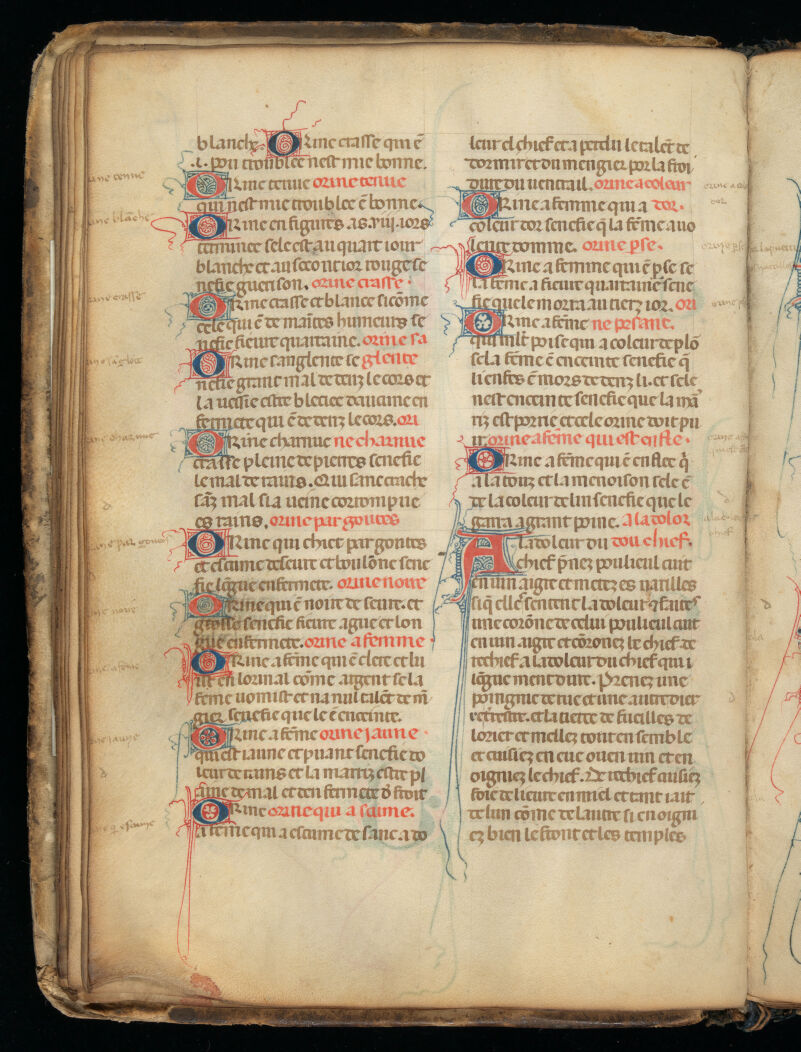 blanche. Orine crasse qui ē
.i. pou troublee nest mie bonne.
Orine tenue orine tenue
qui nest mie troublee ē bonne.
Orine en figures .as. viij. iors
terminee sele est au quart iour
blanche et au secont ior rouge se
nefie guerison. orine crasse.
Orine crasse et blance sicōme
cele qui ē de maītes humeurs se
nefie fieure quartaine. orine sa
Orine sanglente se glente
nefie grant mal dedenz le cors et
la uessie estre bleciee daucune en
fermete qui ē dedenz le cors. ori
Orine charnue ne charnue
crasse pleine de pieces senefie
le mal de rains. Qui sanc crache
sāz mal si a ueine corrompue
es rains. orine par goutes
Orine qui chiet par goutes
et escume deseure et boulōne sene
fie lōgue enfermete. orine noire
Orine qui ē noire deseure. et
grosse senefie fieure ague et lon
gue enfermete. orine a femme
Orine a fēme qui ē clere et lu
ist en lorinal cōme argent se la
feme uomist et na nul talēt de mē
gier senefie que le ē enceinte.
Orine a fēme orine jaune
qui est iaune et puant senefie do
leur de rains et la marriz estre pl
aine de mal et den fermete ō froit
Orine orine qui a scume.
a feme qui a escume de sanc a do
leur el chief et a perdu le talēt de
dormir et du mengier por la froi
dure du uentrail. orine a coleur
Orine a femme qui a dor.
coleur dor senefie q̄ la fēme a uo
lente domme. orine pse.
Orine a femme qui ē pse se
la feme a fieure quartaine sene
fie quele morra au tierz ior. ori
Orine a fēme ne pesanc.
qui mlt poise qui a coleur de plō
se la fēme ē enceinte senefie q̄
li enfes ē mors dedenz li. et sele
nest enceinte senefie que la ma
riz est porrie et cele orine doit pu
ir. orine a feme qui est enfle.
Orine a fēme qui ē enflee q̄
a la touz et la menoison sele ē
de la coleur de lin senefie que le
garra a grant poine. A la dolor
A la doleur du dou chief.
chief pnez poulieul cuit
en uin aigre et metez es narilles
si q̄ elle sentent la doleur & faites
une corōne de celui poulieul cuit
en uin aigre et corōnez le chief. de
rechief a la doleur du chief qui i
lōgue ment dure. Prenez une
poingnie de rue et une autre dier
rerrestre. et la tierce de fueilles de
lorier et mellez tout en semble
et cuisiez en eue ou en uin et en
oigniez le chief. De rechief cuisiez
foie de lieure en miel et tant i ait
de lun cōme de lautre si en oigni
ez bien le front et les temples